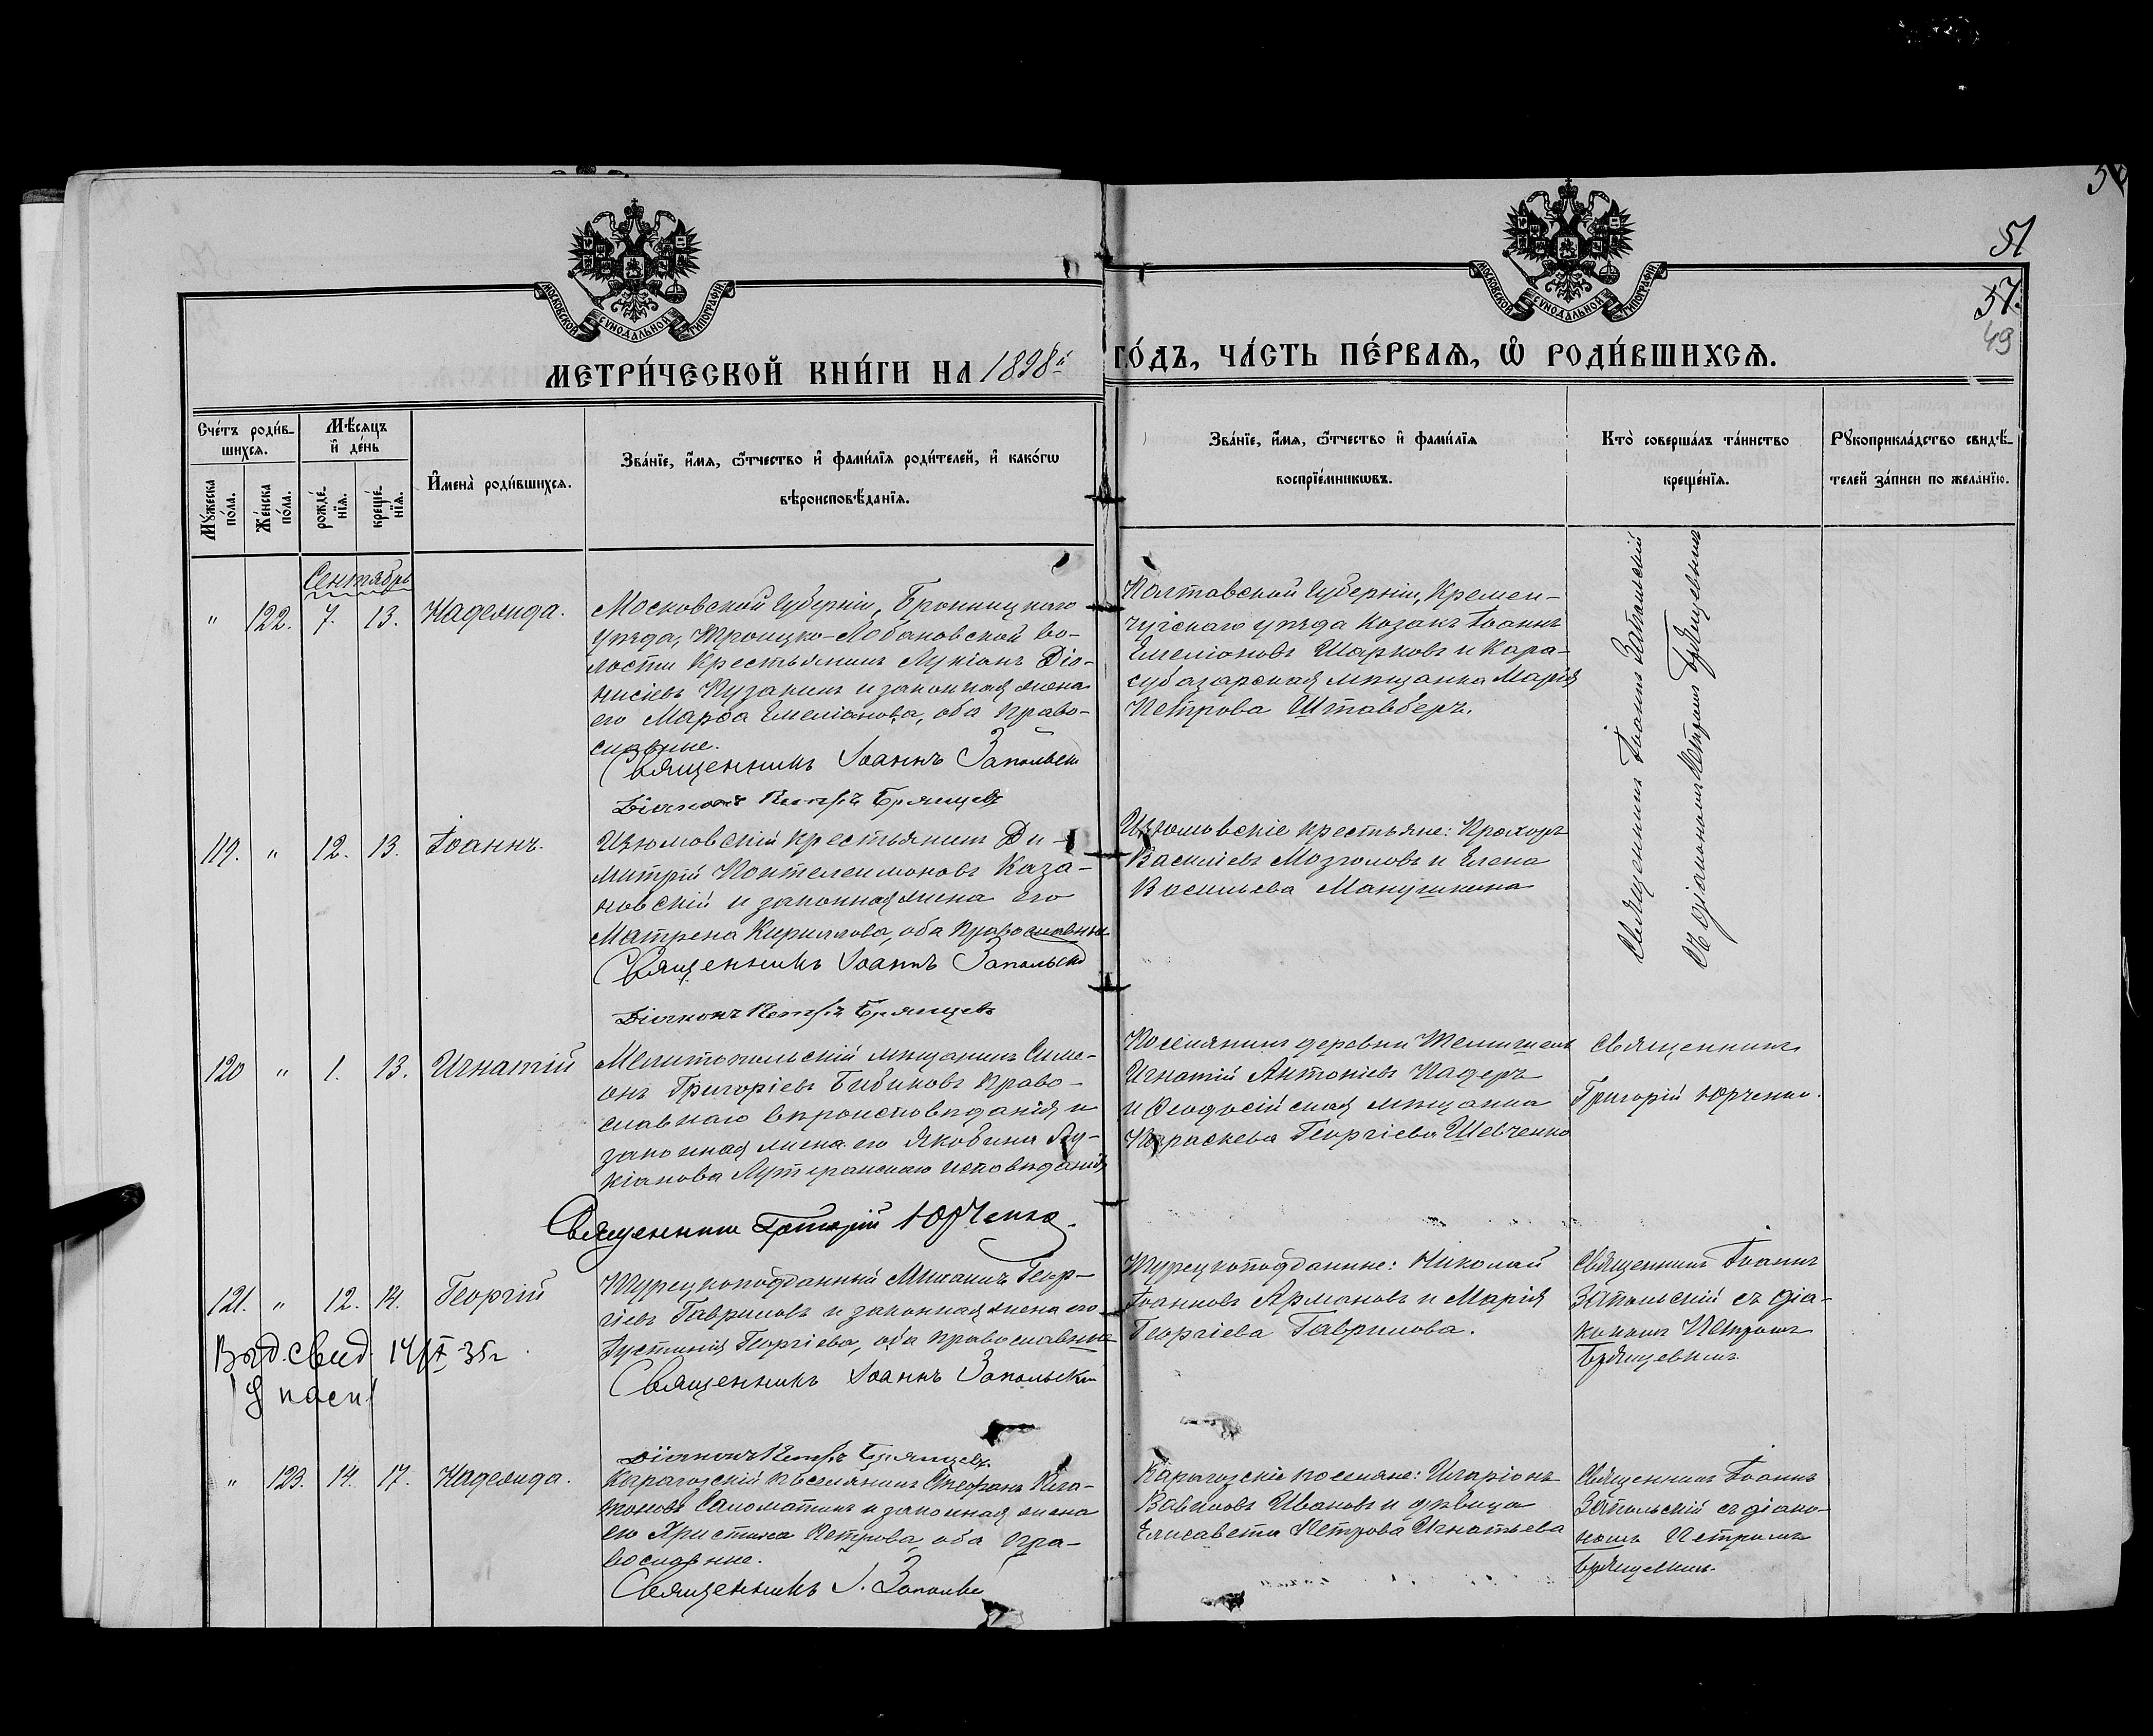 51
57.
49
МОСКОВСКОЙ СУНОДАЛЬНОЙ ТИПОГРАФІИ
МОСКОВСКОЙ СУНОДАЛЬНОЙ ТИПОГРАФІИ
МЕТРИ́ЧЕСКОЙ КНИ́ГИ НА 1898й ГО́ДЪ, ЧА́СТЬ ПЕ́РВАЯ, Ѡ РОДИ́ВШИХСЯ.
Сче́тъ роди́в-
шихся.
Мꙋ́жеска
по́ла.
Же́нска
по́ла.
Мѣ́сяцъ
и҆ де́нь
рожде́-
нїя.
креще́-
нїя.
И҆мена̀ роди́вшихся.
Зва́нїе, и҆́мя, ѻ҆́тчество и҆ фами́лїя роди́телей, и҆ како́гѡ
вѣроисповѣ́данїя.
Зва́нїе, и҆́мя, ѻ҆́тчество и҆ фами́лїя
воспрїе́мникѡвъ.
Кто̀ соверша́лъ та́инство
креще́нїя.
Рꙋкоприкла́дство свидѣ́-
телей за́писи по жела́нїю.
Сентябрь
" 122. 7. 13. Надежда.
Московской губерніи, Бронницкаго
уѣзда, Троицко-Лобановской во-
лости крестьянинъ Лукіанъ Діо-
нисіевъ Пузанинъ и законная жена
его Марѳа Емеліанова, оба право-
славные.
Священникъ Іоаннъ Запольскі
Діаконъ Петръ Брянцевъ
Полтавской губерніи, Кремен-
чугскаго уѣзда козакъ Іоаннъ
Емеліановъ Шарковъ и Кара-
субазарская мѣщанка Марія
Петрова Штавберъ.
Священникъ Іоаннъ Запольскій
съ діакономъ Петромъ Брянцевымъ
119. " 12. 13. Іоаннъ.
Изюмовскій крестьянинъ Ди-
митрій Пантелеимоновъ Каза-
новскій и законная жена его
Матрена Кириллова, оба православные
Священникъ Іоаннъ Запольскі
Діаконъ Петръ Брянцевъ
Изюмовскіе крестьяне: Прохоръ
Василіевъ Мозголовъ и Елена
Васильева Манушкина
120 " 1. 13. Игнатій
Мелитопольскій мѣщанинъ Симе-
онъ Григоріевъ Бибиковъ право-
славнаго вѣроисповѣданія и
законная жена его Якобина Лу-
кіанова Лутеранскаго исповѣданія
Священникъ Григорій Юрченко.
Поселянинъ деревни
Игнатій Антоніевъ Надеръ
и Ѳеодосійская мѣщанка
Параскева Георгіева Шевченко
Священникъ
Григорій Юрченко.
121. " 12. 14. Георгій
Выд. свид. 14/X 35г
Турецкоподданный Михаилъ Геор-
гіевъ Гавриловъ и законная жена его
Іустинія Георгіева, оба православные
Священникъ Іоаннъ Запольскі
Діаконъ Петръ Брянцевъ.
Турецкоподданные: Николай
ІоанновъАрмановъ и Марія
Георгіева Гаврилова.
Священникъ Іоаннъ
Запольскій съ діа-
кономъ Петромъ
Брянцевымъ.
" 123. 14. 17. Надежда.
Карагозскій поселянинъ Стефанъ
Саломатинъ и законная жена
его Христина Петрова, оба пра-
вославные.
Священникъ І. Запольс
Карагозскіе поселяне: Иларіонъ
Вавиловъ Ивановъ и дѣвица
Елисавета Петрова Игнатьева
Священникъ Іоаннъ
Запольскій съ діако-
номъ Петромъ
Брянцевымъ.